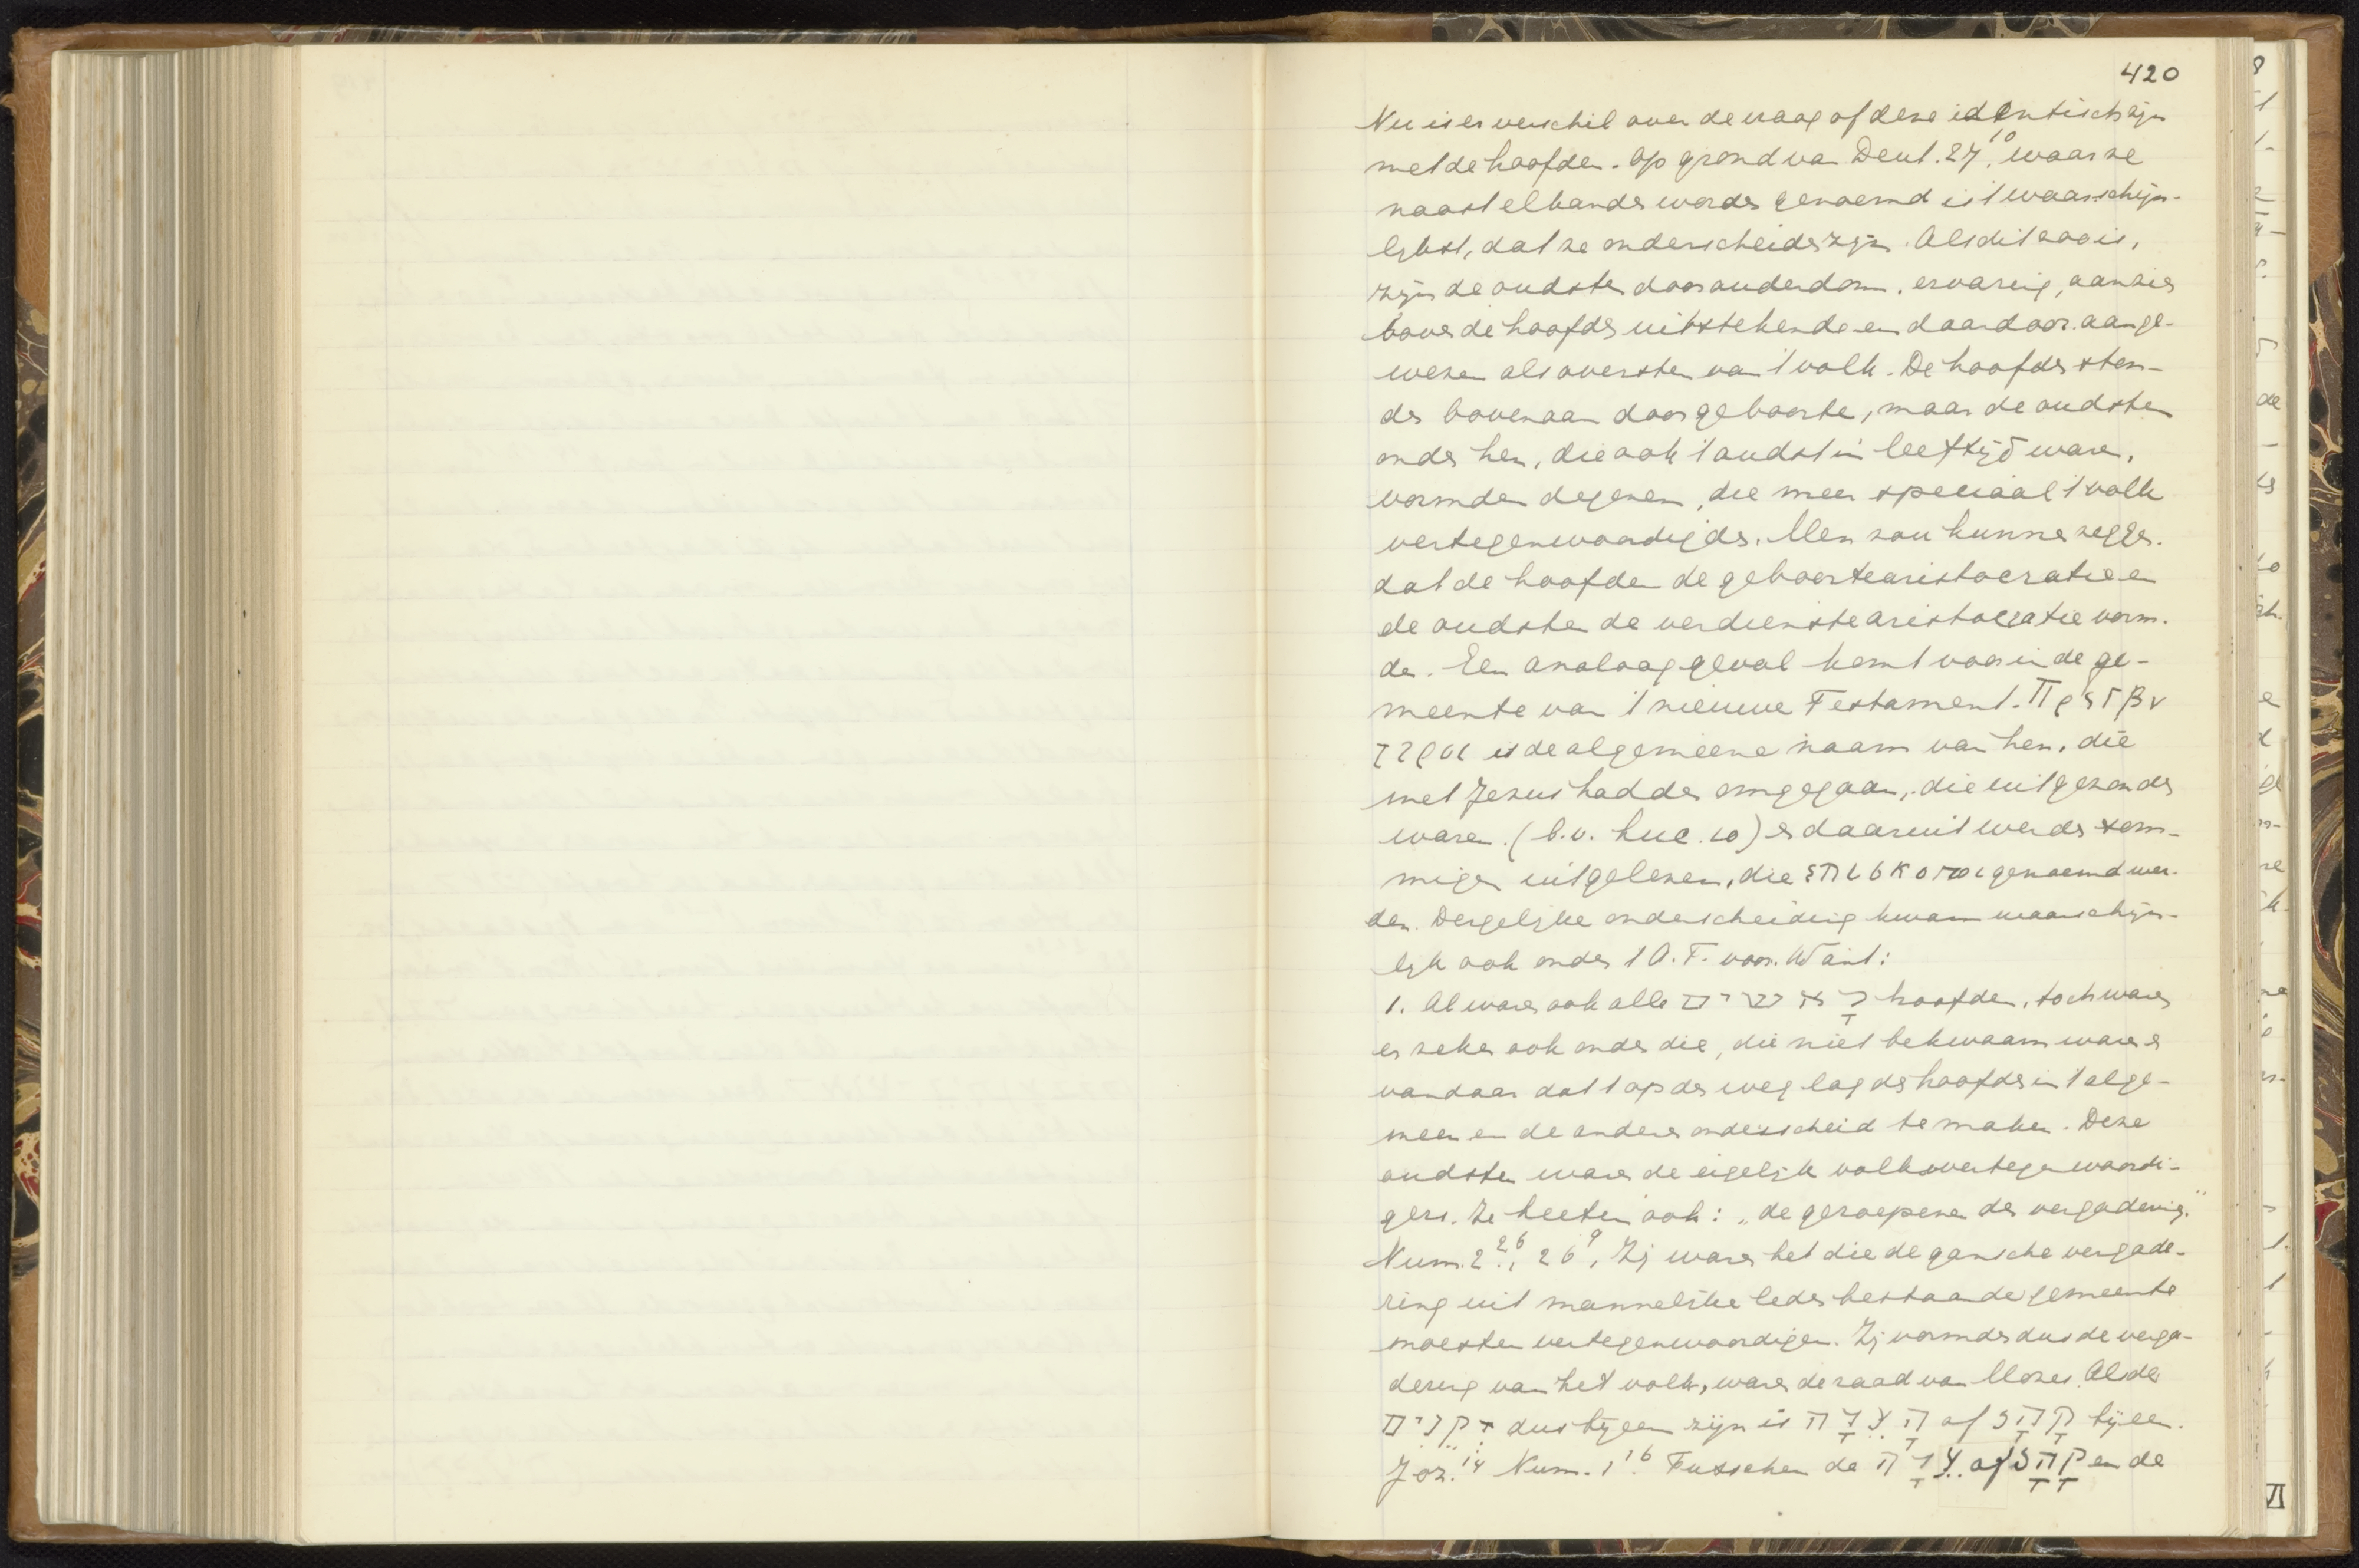 420
Nu is er verschil over de vraag of deze identisch zijn
met de hoofden. Op grond van Deut. 27.10 waar ze
naast elkander worden genoemd is 't waarschijn-
lijkst, dat ze onderscheiden zijn. Als dit zoo is,
zijn de oudsten door ouderdom, ervaring, aanzien
boven de hoofden uitstekende en daardoor aange-
wezen als oversten van 't volk. De hoofden ston-
den bovenaan door geboorte, maar de oudsten
onder hen, die ook 't oudst in leeftijd waren,
vormden degenen, die meer speciaal 't volk
vertegenwoordigden. Men zou kunnen zeggen.
dat de hoofden de geboortearistocratie en
de oudsten de verdienstearistocratie vorm-
den. Een analoog geval komt voor in de ge-
meente van 't nieuwe Testament. Πρεσβυ
τεροι is de algemeene naam van hen, die
met Jezus hadden omgegaan, die uitgezonden
waren. (b.v. Luc. 10) en daaruit werden som-
migen uitgelezen, die επισκοποι genoemd wer-
den. Dergelijke onderscheiding kwam waarschijn-
lijk ook onder 't O.T. voor. Want:
1. Al waren ook alle hoofden, toch waren
er zeker ook onder die, die niet bekwaam waren en
vandaar dat 't op den weg lag de hoofden in 't alge-
meen en de andere onderscheid te maken. Deze
oudsten waren de eigelijk volksvertegenwoordi-
gers. Ze heeten ook: „de geroepenen der vergadering."
Num. 2.26, 26.9, Zij waren het die de gansche vergade-
ring uit mannelijke leden bestaande gemeente
moesten vertegenwoordigen. Zij vormden dus de verga-
dering van het volk, waren de raad van Mozes. Als de
זקנים dus bijeen zijn is העדה of קהל bijeen.
Joz. 14 Num. 1.16 Tusschen de עדה of קהל en de